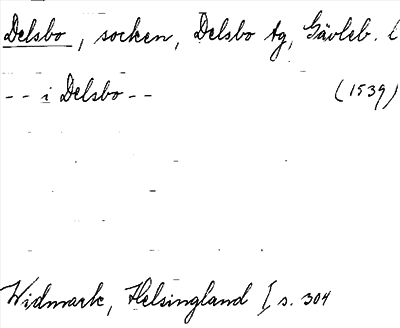 Delsbo, socken, Delsbo tg, Gävleb. l
-- i Delsbo -- (1539)
Widmark, Helsingland I s. 304